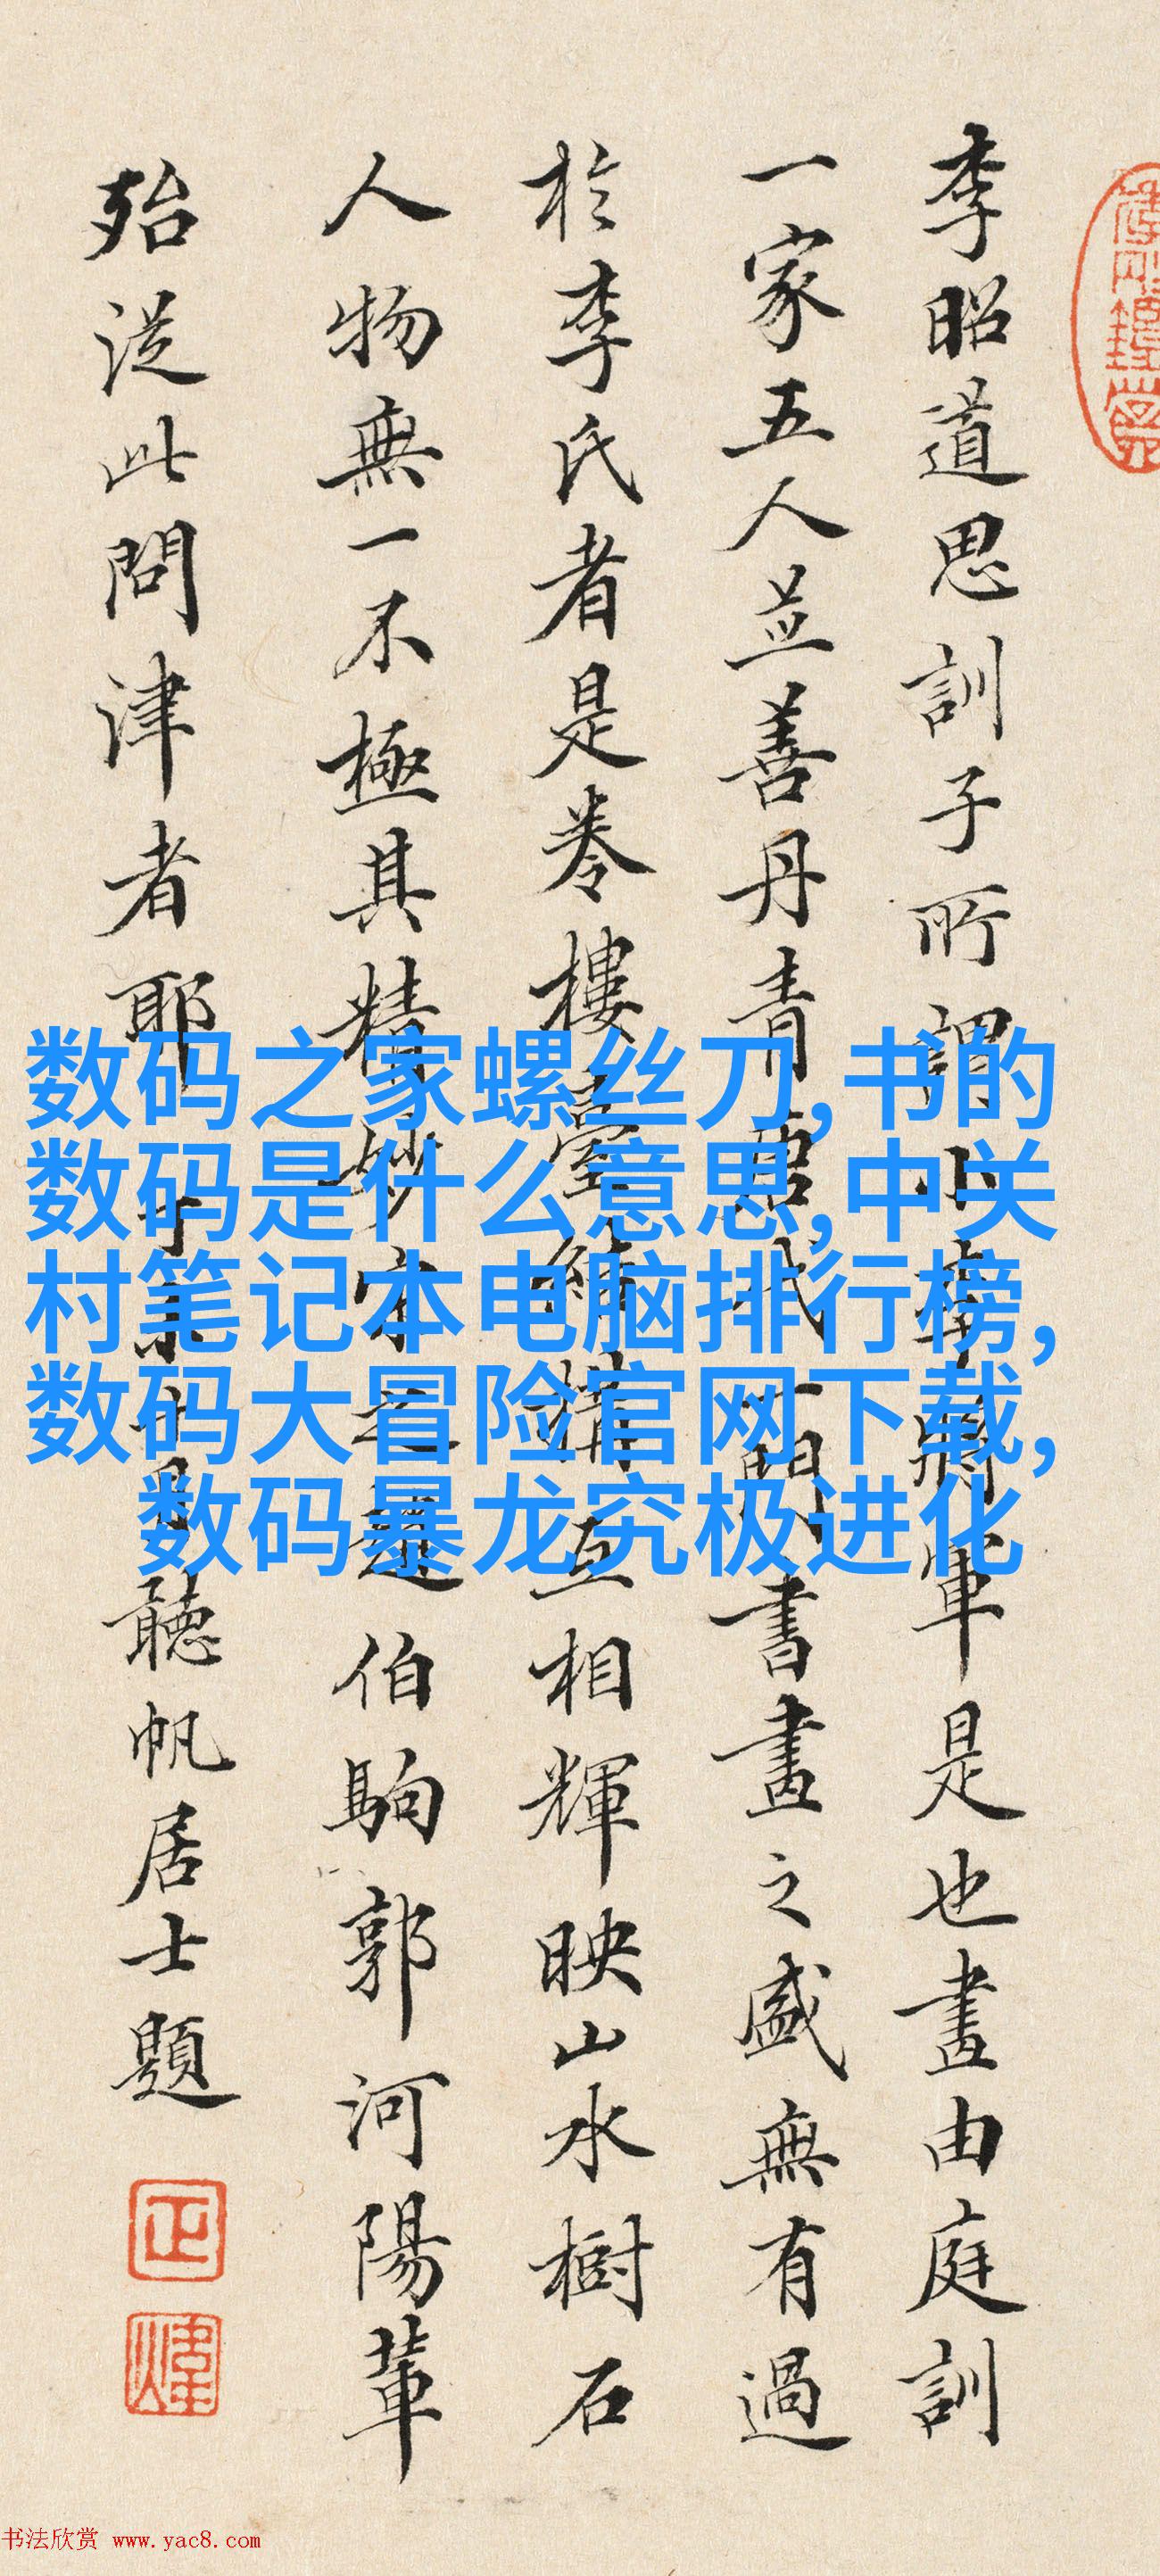 李昭道思訓子所謂小李將軍是也畫由庭訓
一家五人並善丹青唐代一門書畫之盛無有過
於李氏者是卷樓臺結構互相輝映山水樹石
人物無一不極其精妙宋之趙伯駒郭河陽輩
殆從此問津者耶
聽帆居士題
数码之家螺丝刀,书的
数码是什么意思,中关
村笔记本电脑排行榜,
数码大冒险官网下载,
数码暴龙究极进化
正
煒
书法欣赏 www.yac8.com